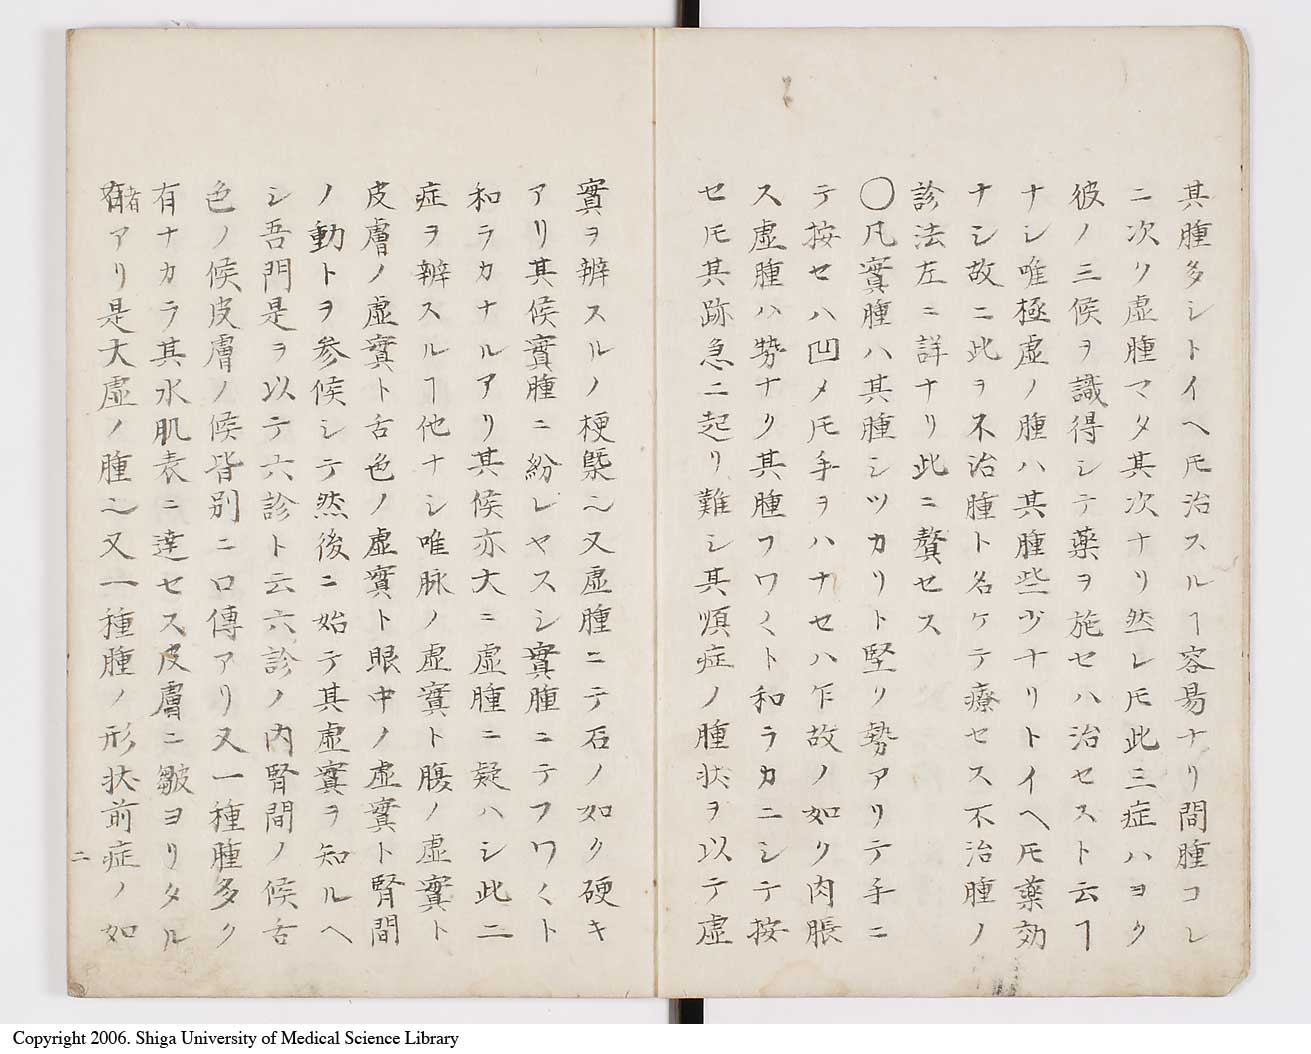 其腫多シトイヘ𪜈治スルヿ容易ナリ間腫コレ
ニ次ク虚腫マタ其次ナリ然レ𪜈此三症ハヨク
彼ノ三候ヲ識得シテ藥ヲ施セハ治セスト云ヿ
ナシ唯極虚ノ腫ハ其腫些少ナリトイヘ𪜈藥効
ナシ故ニ此ヲ不治腫ト名ケテ療セス不治腫ノ
診法左ニ詳ナリ此ニ贅セス
○凡實腫ハ其腫シツカリト堅ク勢アリテ手ニ
テ按セハ凹メ𪜈手ヲハナセハ乍故ノ如ク肉脹
ス虚腫ハ勢ナク其腫フワ〱ト和ラカニシテ按
セ𪜈其跡急ニ起リ難シ其順症ノ腫状ヲ以テ虚
實ヲ辨スルノ梗槩也又虚腫ニテ石ノ如ク硬キ
アリ其候實腫ニ紛レヤスシ實腫ニテフワ〱ト
和ラカナルアリ其候亦大ニ虚腫ニ疑ハシ此二
症ヲ辨スルヿ他ナシ唯脉ノ虚實ト腹ノ虚實ト
皮膚ノ虚實ト舌色ノ虚實ト眼中ノ虚實ト腎間
ノ動トヲ参候シテ然後ニ始テ其虚實ヲ知ルヘ
シ吾門是ヲ以テ六診ト云六診ノ内腎間ノ候舌
色ノ候皮膚ノ候皆別ニ口傳アリ又一種腫多ク
有ナカラ其水肌表ニ達セス皮膚ニ皺ヨリタル
者アリ是大虚ノ腫也又一種腫ノ形状前症ノ如
二
Copyright 2006. Shiga University of Medical Science Library